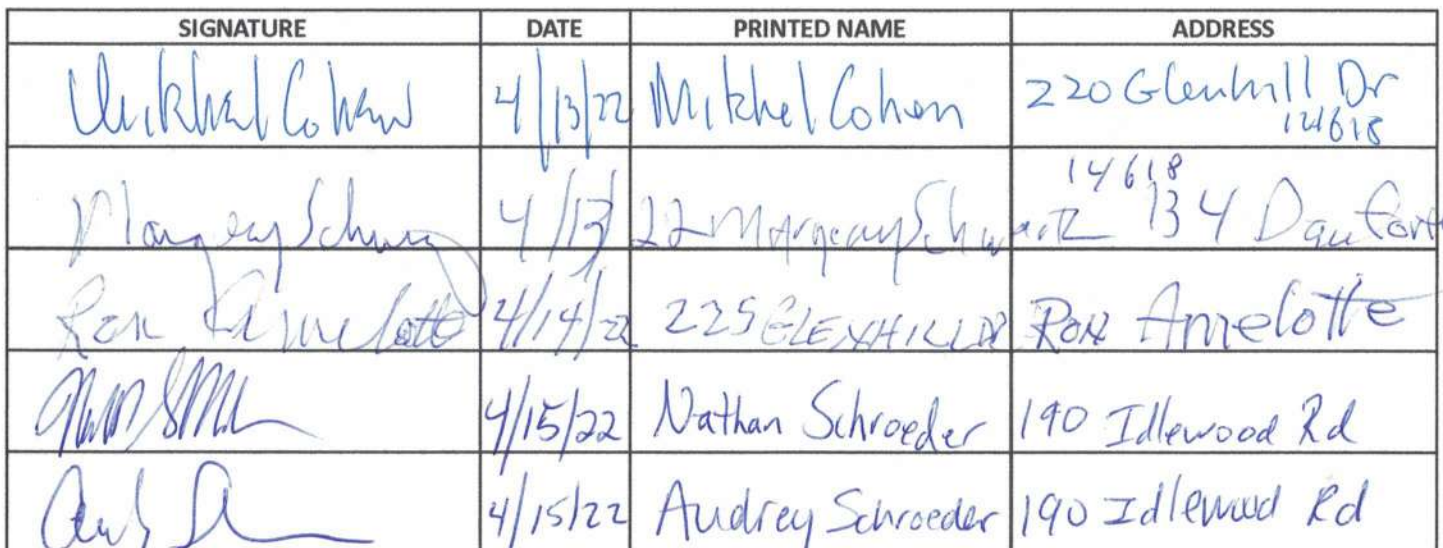 SIGNATURE DATE PRINTED NAME ADDRESS
Mikhel Cohen 4/13/22 Mikhel Cohen 220 Glenhill Dr
14618
14618
4/13/22 Schwartz 134 Danforth
Ron Amelotte 4/14/22 225 GLENHILL DR Ron Amelotte
4/15/22 Nathan Schroeder 190 Idlewood Rd
4/15/22 Audrey Schroeder 190 Idlewood Rd